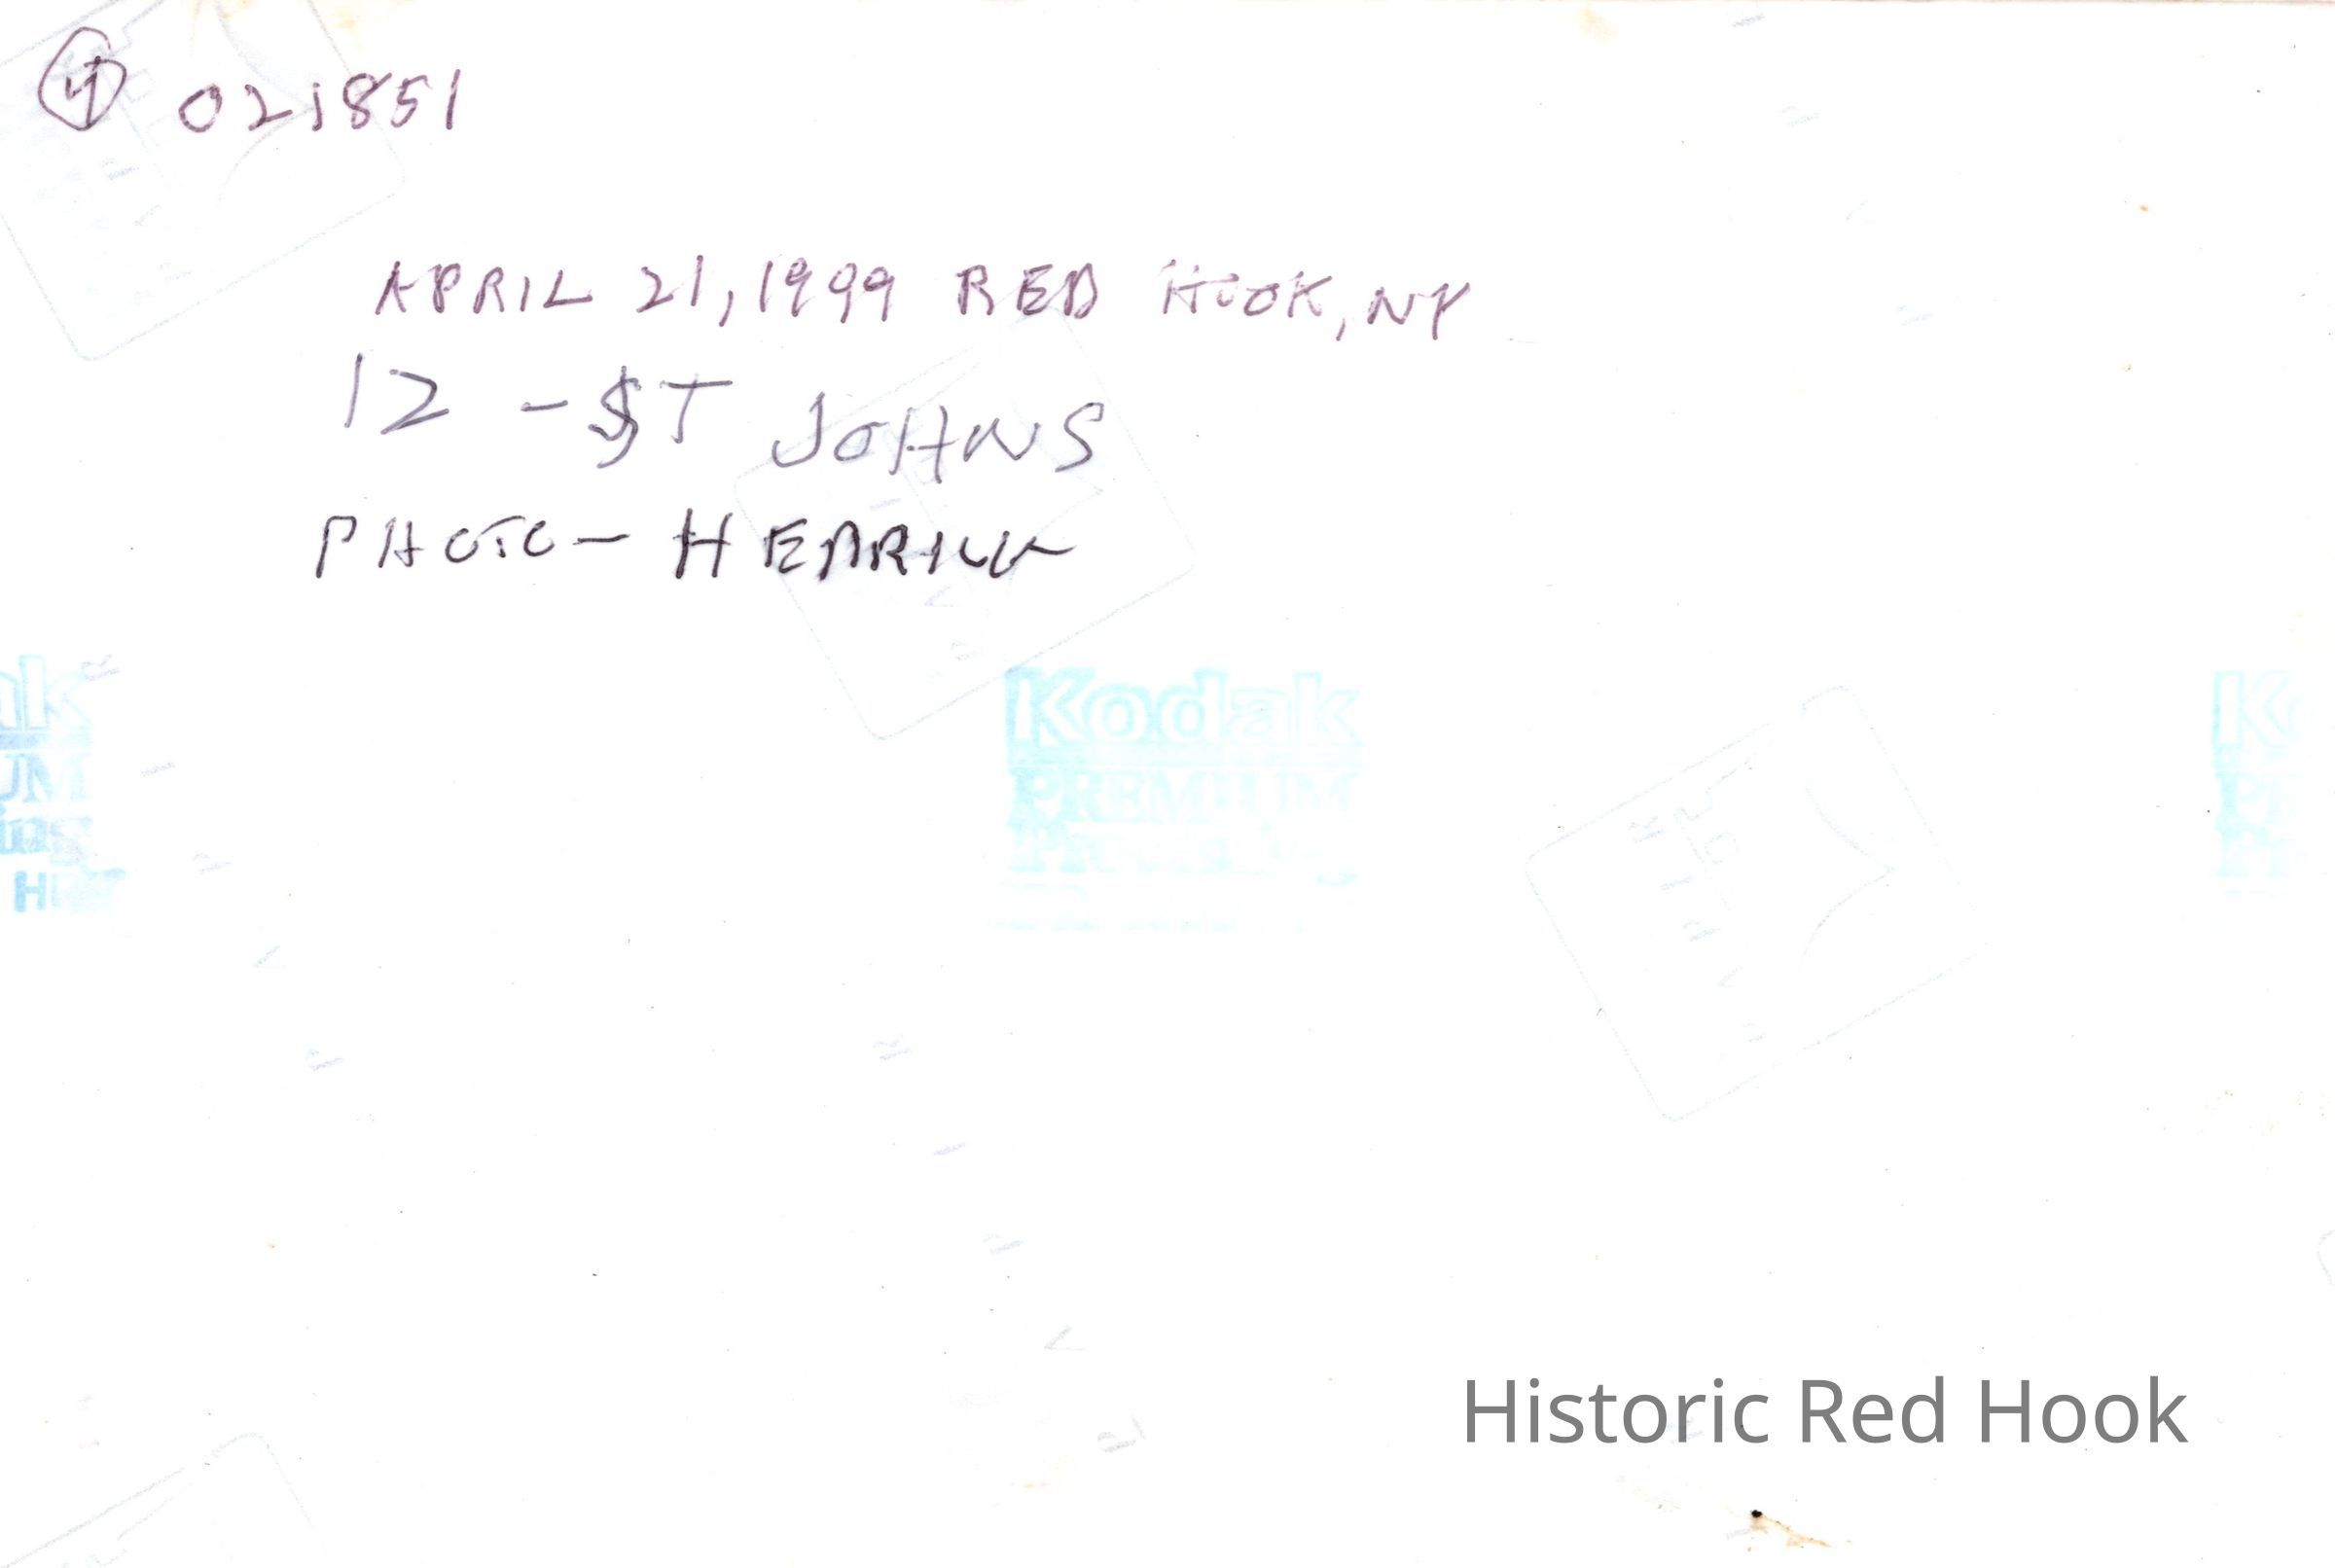 ④ 021851
APRIL 21, 1999 RED HOOK, NY
12 - ST JOHNS
PHOTO -
Kodak
PREMIUM
Historic Red Hook